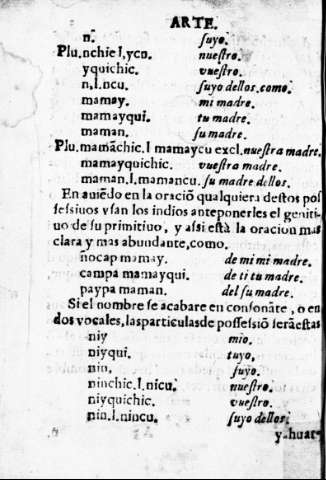 ARTE.
n. suyo.
Plu. nchic l. ycu. nuestro.
yquichic. vuestro.
n. l. ncu. suyo dellos. como.
mamay. mi madre.
mamayqui. tu madre.
maman. su madre.
Plu. mamãchic. l mamaycu excl. nuestra madre.
mamayquichic. vuestra madre.
maman. l mamancu. su madre dellos.
En auiẽdo en la oraciõ qualquiera destos pos
sessiuos vsan los indios anteponerles el geniti
uo de su primitiuo, y assi està la oracion mas
clara y mas abundante, como.
ñocap mamay. de mi mi madre.
campa mamayqui. de ti tu madre.
paypa maman. del su madre.
Si el nombre se acabare en consonãte, o en
dos vocales, las particulas de possessiõ serã estas
niy mio.
niyqui. tuyo,
nin. suyo.
ninchic. l. nicu. nuestro.
niyquichic. vuestro.
nin. l. nincu. suyo dellos.
yahuar